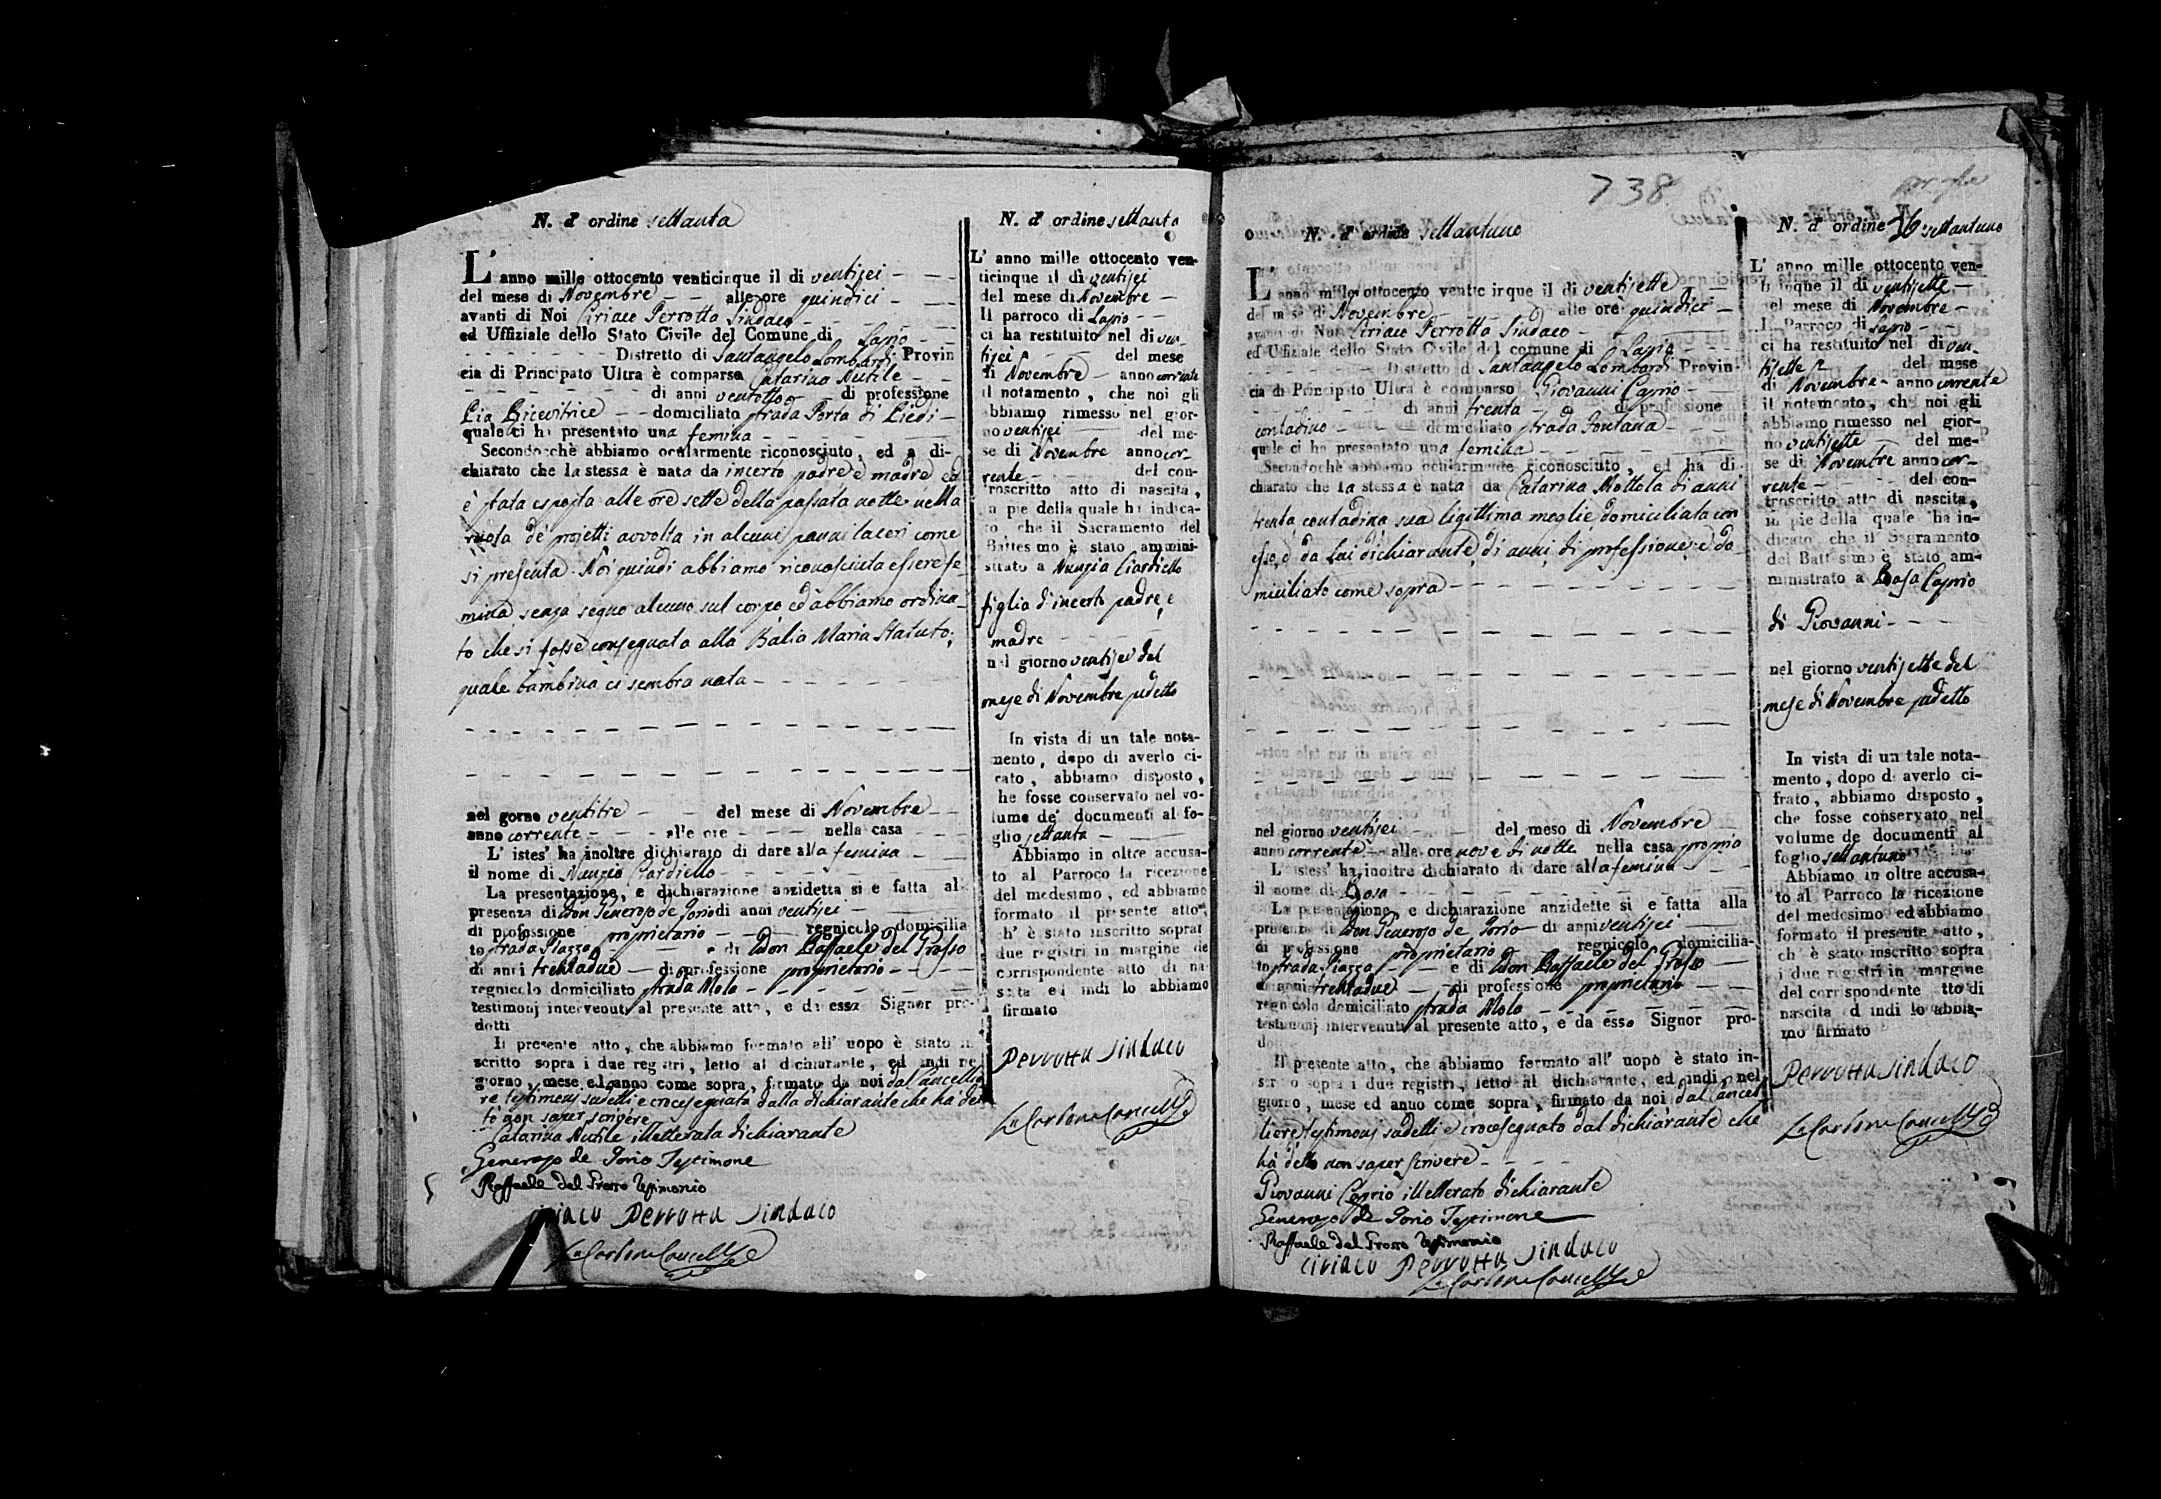 N. d' ordine settanta
L' anno mille ottocento venticinque il di ventisei
del mese di Novembre alle ore quindici
avanti di Noi Ciriaco Perrotta Sindaco
ed Uffiziale dello Stato Civile del Comune di Lapio
Distretto di Santangelo Lombardi Provin
cia di Principato Ultra è comparsa Catarina Nutile
di anni ventotto di professione
Pia Ricevitrice domiciliato strada Porta di Piedi
quale ci ha presentato una femina
Secondochè abbiamo ocularmente riconosciuto, ed a di-
chiarato che la stessa è nata da incerto padre e madre ed
è stata esposta alle ore sette della passata notte nella
ruota de projetti avvolta in alcuni panni laceri come
si presenta. Noi quindi abbiamo riconosciuta essere fe-
mina senza segno alcuno sul corpo ed abbiamo ordina-
to che si fosse consegnata alla Balia Maria Statuto;
quale bambina ci sembra nata
nel gorno ventitre del mese di Novembre
anno corrente alle ore nella casa
L' istes' ha inoltre dichiarato di dare alla femina
il nome di Nunzia Ciardiello
La presentazione, e dichiarazione anzidetta si e fatta al
presenza di Don Generoso de Jorio di anni ventisei
di professione proprietario regnicolo domicilia
to strada Piazza e di Don Raffaele del Grosso
di anni trentadue di professione proprietario
regnicolo domiciliato strada Molo
testimonj intervenuti al presente atto, e da esso Signor pro-
dotti
Il presente atto, che abbiamo formato all' uopo è stato in
scritto sopra i due registri, letto al dichiarante, ed indi ne
giorno, mese ed anno come sopra, firmato da noi dal Cancellie
re testimonj sudetti e crocesegnata dalla dichiarante che ha det
to non saper scrivere
Catarina Nutile illetterata dichiarante
Generoso de Jorio Testimone
Raffaele del Grosso testimonio
Ciriaco Perrotta Sindaco
N. d' ordine settanta
L' anno mille ottocento ven-
ticinque il dì ventisei
del mese di Novembre
Il parroco di Lapio
ci ha restituito nel di ven-
tisei del mese
di Novembre anno corrente
il notamento, che noi gli
abbiamo rimesso nel gior-
no ventisei del me-
se di Novembre anno cor-
rente del con-
troscritto atto di nascita,
in pie della quale ha indica-
to che il Sacramento del
Battesimo è stato ammini-
strato a Nunzia Ciardiello
figlia d'incerto padre, e
madre
nel giorno ventisei del
mese di Novembre sudetto
In vista di un tale nota-
mento, dopo di averlo ci-
rato, abbiamo disposto,
he fosse conservato nel vo-
lume de' documenti al fo-
glio settanta
Abbiamo in oltre accusa-
to al Parroco la ricezione
del medesimo, ed abbiamo
formato il presente atto,
ch' è stato inscritto soprai
due registri in margine de
corrispondente atto di na
scita ed indi lo abbiamo
firmato
Perrotta Sindaco
738
N. d' ordine settantuno
L' anno mille ottocento venticinque il di ventisette
del mese di Novembre alle ore quindici
avanti di Noi Ciriaco Perrotta Sindaco
ed Uffiziale dello Stato Civile del comune di Lapio
Distretto di Santangelo Lombardi Provin-
cia di Principato Ultra è comparso Giovanni Caprio
di anni trenta di professione
contadino domiciliato strada Fontana
quale ci ha presentato una femina
Secondochè abbiamo ocularmente riconosciuto, ed ha di
chiarato che la stessa è nata da Catarina Mottola di anni
trenta contadina sua legittima moglie domiciliata con
esso, e da Lui dichiarante, di anni, di professione, e do-
miciliato come sopra
nel giorno ventisei del meso di Novembre
anno corrente alle ore nove di notte nella casa propria
L' istess' ha inoltre dichiarato di dare alla femina
il nome di Rosa
La presentazione, e dichiarazione anzidette si e fatta alla
presenza di Don Generoso de Jorio di anni ventisei
di professione proprietario regnicolo domicilia-
to strada Piazza e di Don Raffaele del Grosso
di anni trentadue di professione proprietario
regnicolo domiciliato strada Molo
testimonj intervenuti al presente atto, e da esso Signor pro-
dotti
Il presente atto, che abbiamo formato all' uopo è stato in-
scritto sopra i due registri, letto al dichiarante, ed indi nel
giorno, mese ed anno come sopra, firmato da noi dal Cancel
liere testimonj sudetti e crocesegnato dal dichiarante che
hà detto non saper scrivere
Giovanni Caprio illetterato dichiarante
Generoso de Jorio Testimone
Raffaele del Grosso testimonio
Ciriaco Perrotta Sindaco
N. d' ordine settantuno
L' anno mille ottocento ven-
ticinque il di ventisette
del mese di Novembre
Il Parroco di Lapio
ci ha restituito nel di ven-
tisette del mese
di Novembre anno corrente
il notamento, che noi gli
abbiamo rimesso nel gior-
no ventisette del me-
se di Novembre anno cor-
rente del con-
troscritto atto di nascita,
in pie della quale ha in-
dicato che il Sagramento
del Battesimo è stato am-
ministrato a Rosa Caprio
di Giovanni
nel giorno ventisette del
mese di Novembre sudetto
In vista di un tale nota-
mento, dopo di averlo ci-
frato, abbiamo disposto,
che fosse conservato nel
volume de documenti al
foglio settantuno
Abbiamo in oltre accusa-
to al Parroco la ricezione
del medesimo ed abbiamo
formato il presente atto,
ch' è stato inscritto sopra
i due registri in margine
del corrispondente atto di
nascita ed indi lo abbia-
mo firmato
Perrotta Sindaco